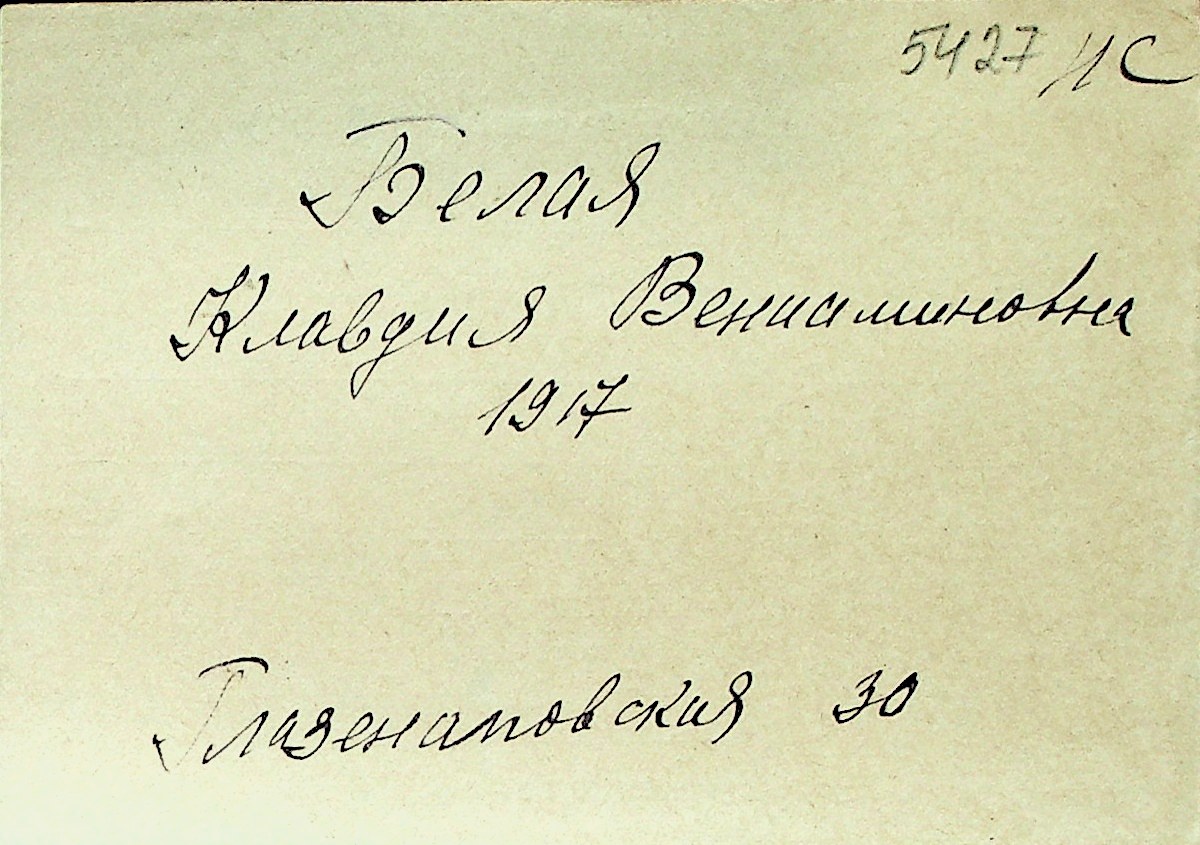 5427 НС
Белая
Клавдия Вениаминовна
1917
Глазенаповская 30